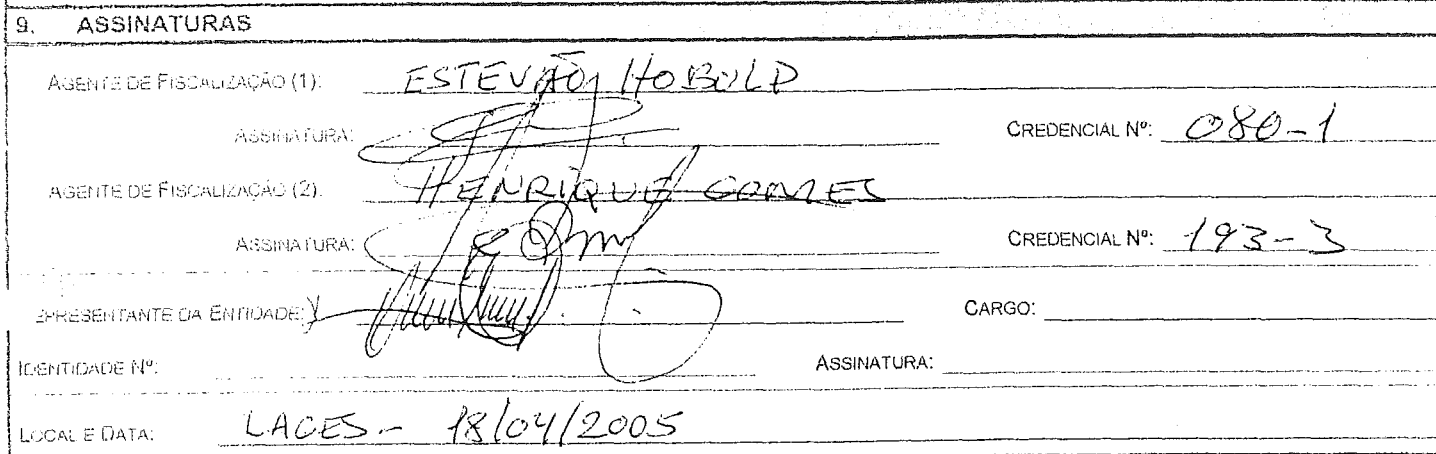 9. ASSINATURAS
AGENTE DE FISCALIZAÇÃO (1): ESTEVÃO HOBOLD
ASSINATURA: CREDENCIAL Nº: 080-1
AGENTE DE FISCALIZAÇÃO (2): HENRIQUE GOMES
ASSINATURA: CREDENCIAL Nº: 193-3
EPRESENTANTE DA ENTIDADE: CARGO:
IDENTIDADE Nº: ASSINATURA:
LOCAL E DATA: LAGES - 18/04/2005